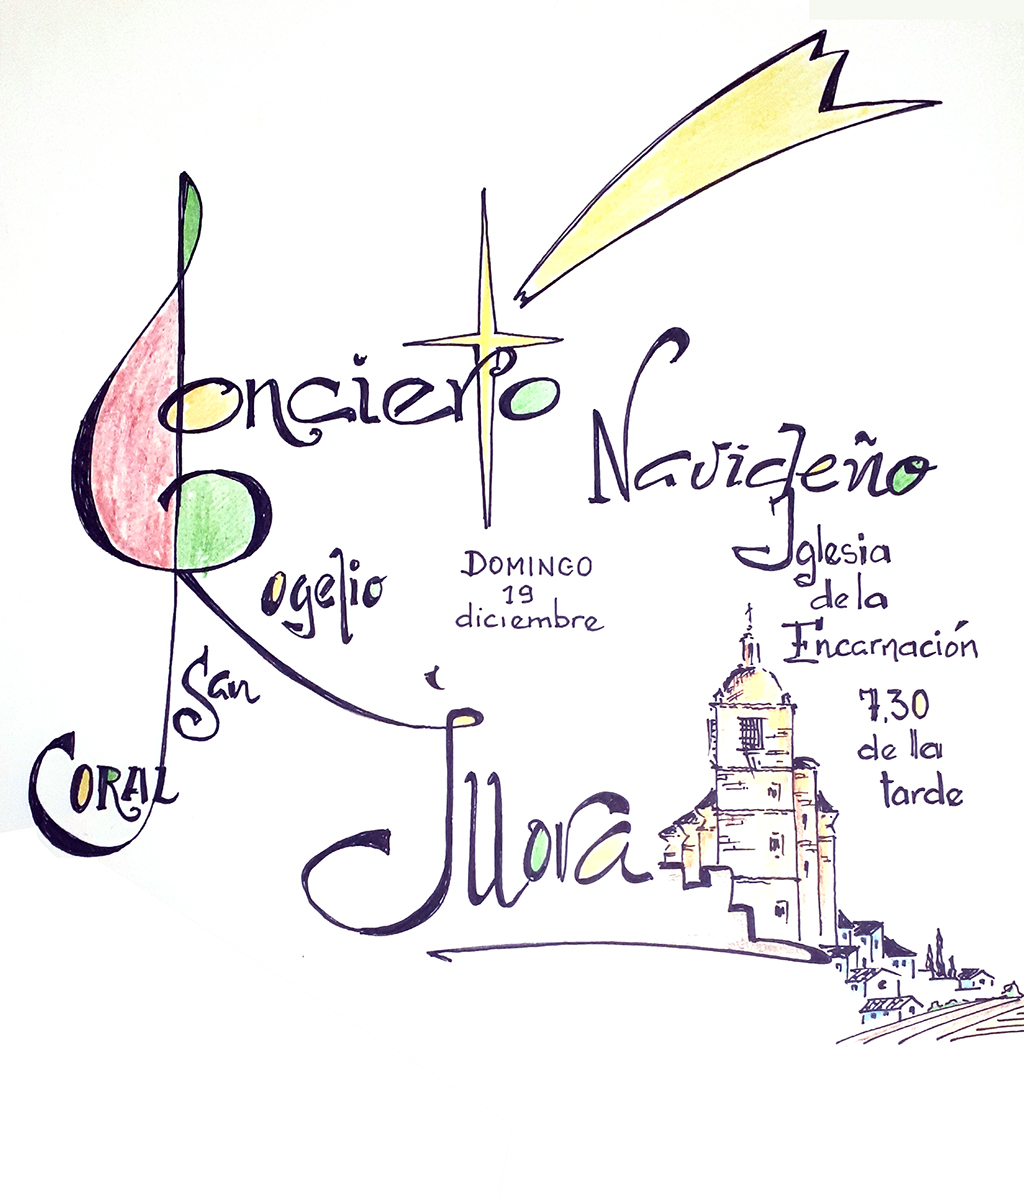 Concierto
Navideño
CORAL
San
Rogelio
Íllora
DOMINGO
19
diciembre
Iglesia
de la
Encarnación
7,30
de la
tarde